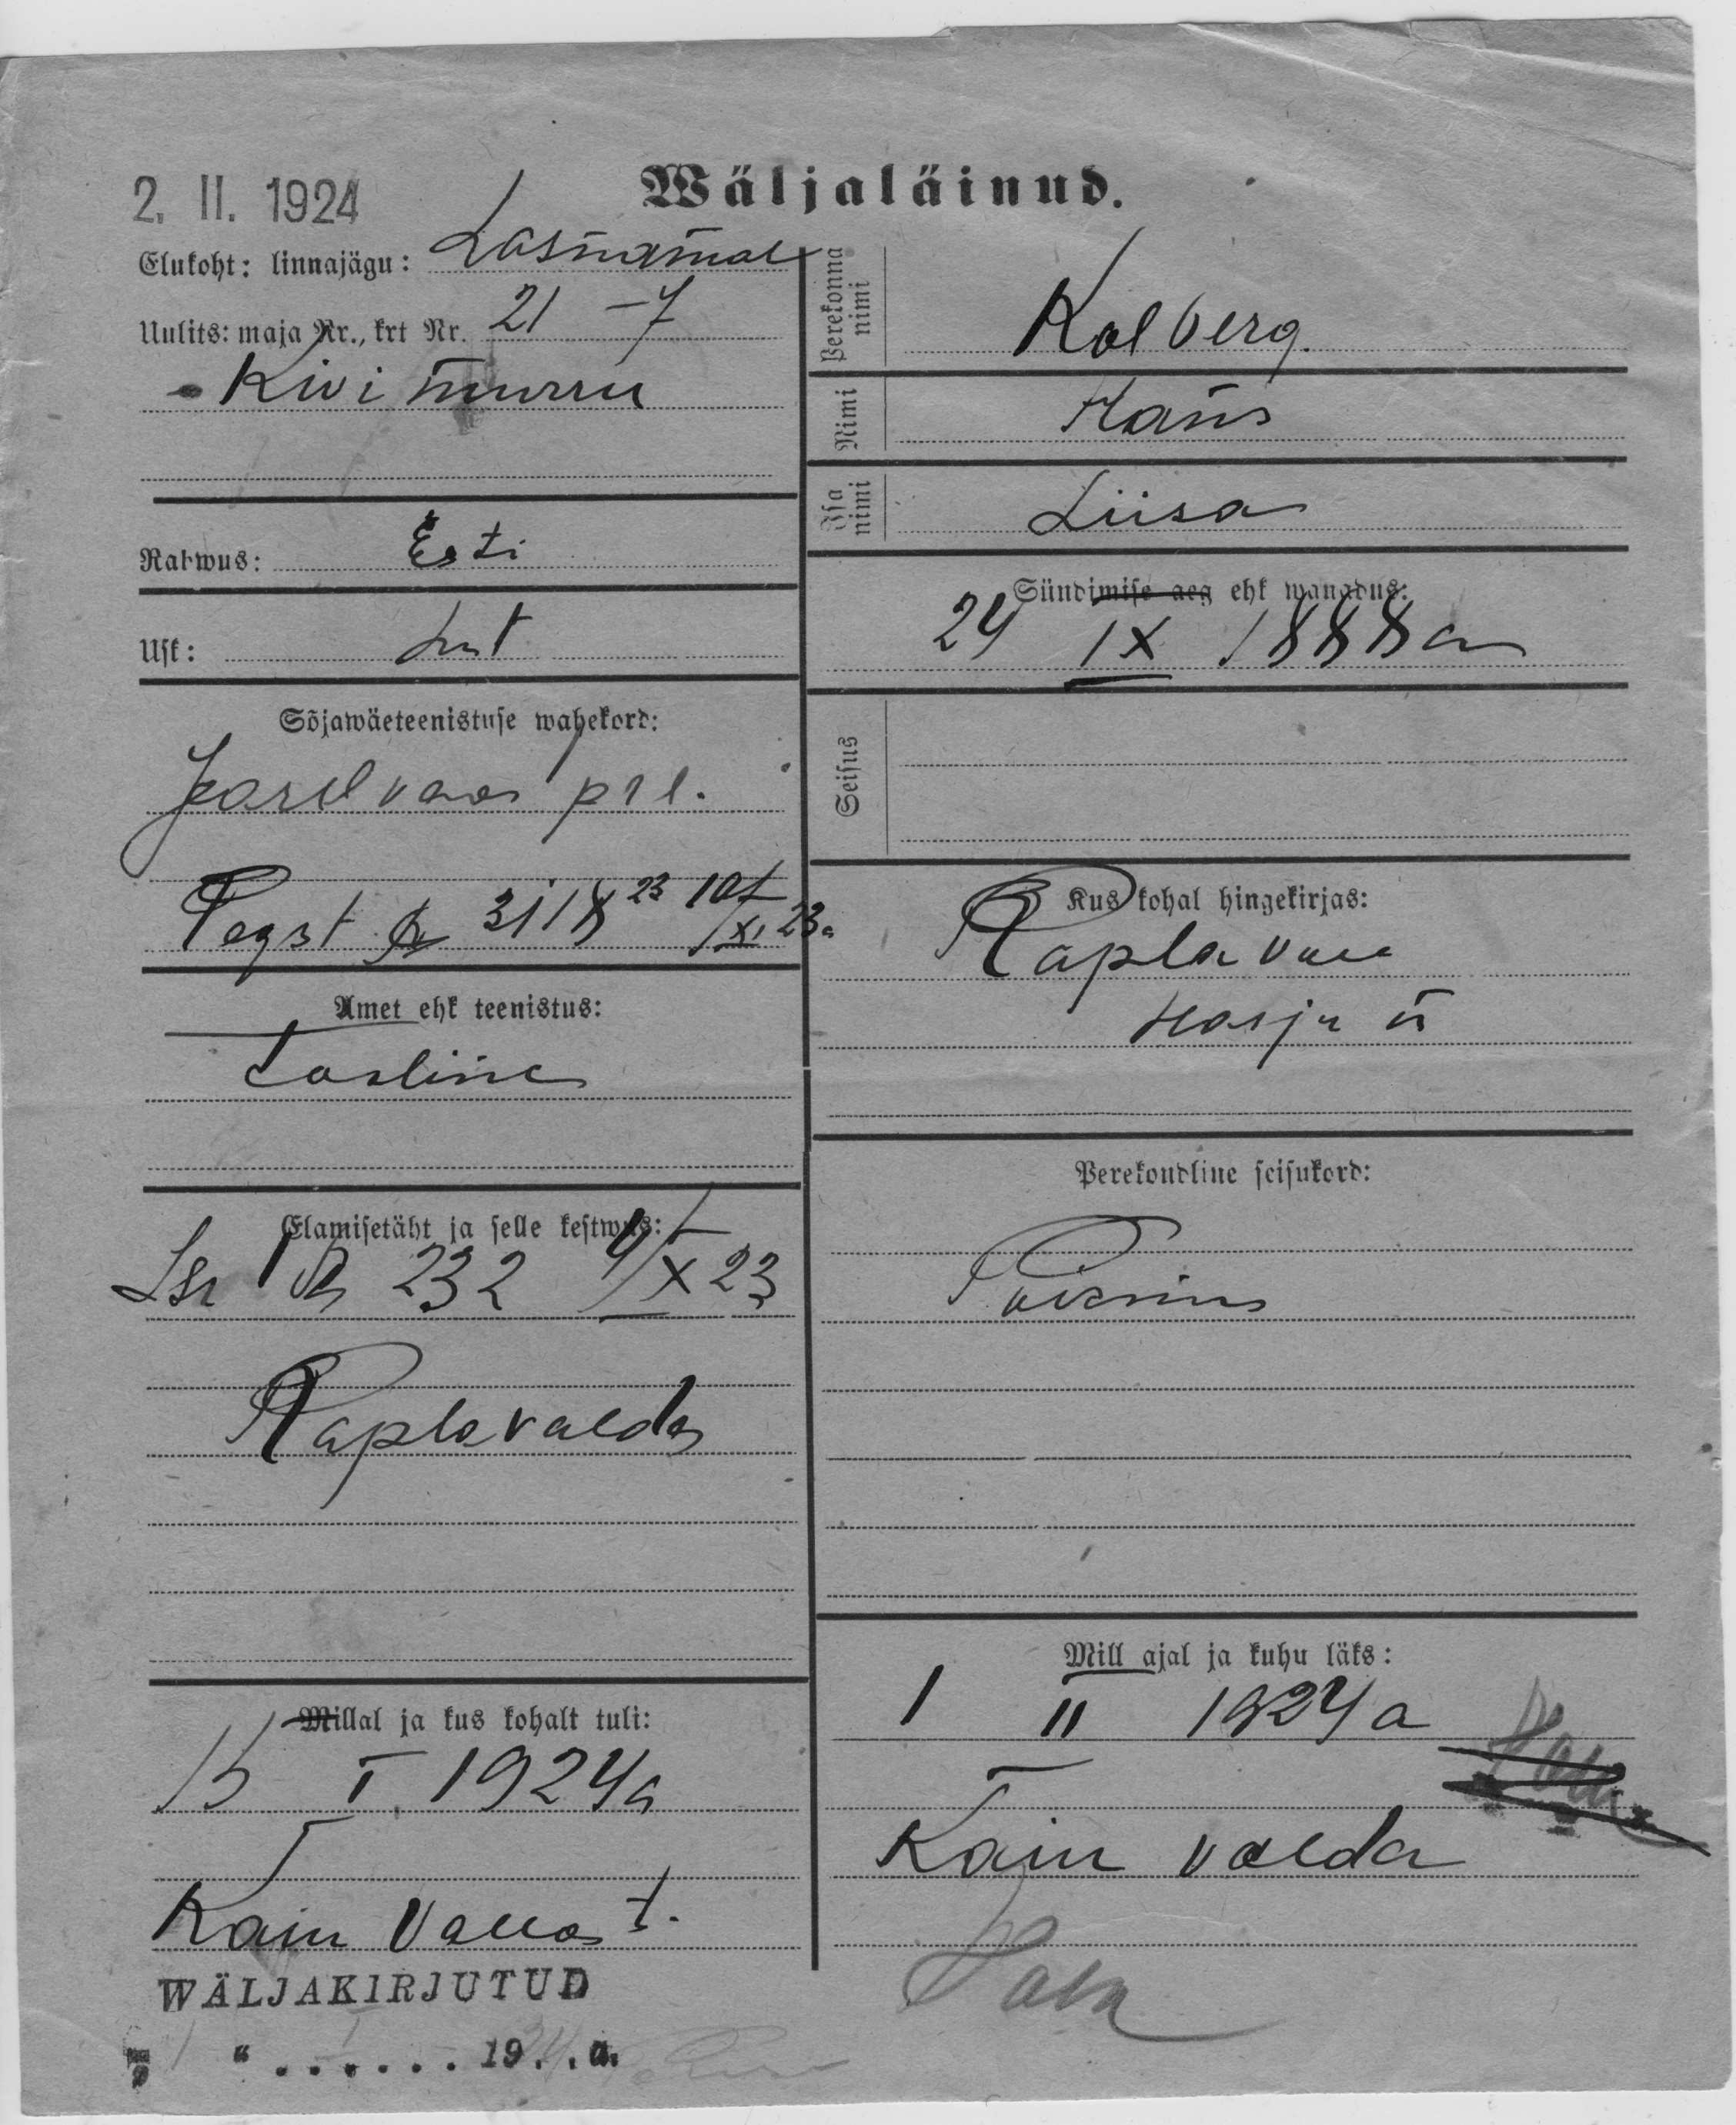 2. II. 1924
Wäljaläinud.
Elukoht: linnajägu: Lasnamäe
Uulits: maja Nr., krt Nr. 21 - 7
Kivimurru
Rahwus: Eesti
Usk: Lut
Sõjawäeteenistuse wahekord:
pr l.
3118 23 10/XI 23a
Amet ehk teenistus:
Tööline
Elamisetäht ja selle kestwus:
232 4/X 23
Rapla valda
Millal ja kus kohalt tuli:
15 I 1924a
Kaiu vallast.
WÄLJAKIRJUTUD
" . . . . . . 19. . a.
Perekonna nimi
Kolberg
Nimi
Hans
Isa nimi
Liisa
Sündimise aeg ehk wanadus:
24 IX 1888 a
Seisus
Kus kohal hingekirjas:
Rapla vald
Harju
Perekondline seisukord:
Mill ajal ja kuhu läks:
1 II 1924 a
Kaiu valda